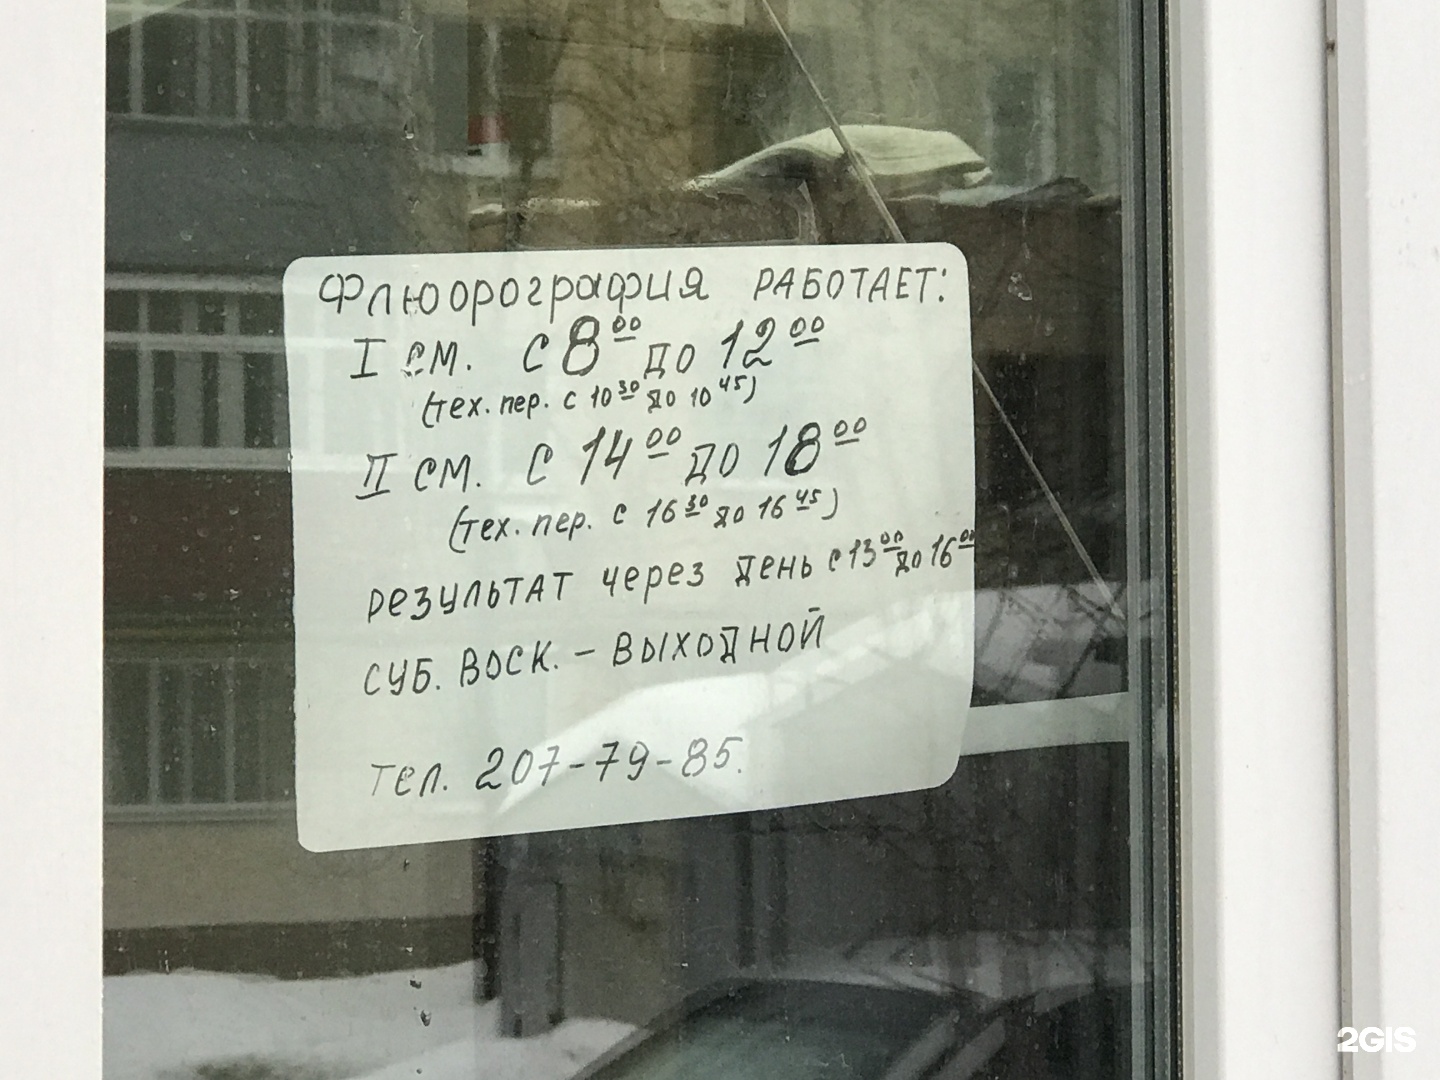 Флюорография РАБОТАЕТ:
I см. с 8 00 до 12 00
(тех. пер. с 10 30 до 10 45)
II см. с 14 00 до 18 00
(тех. пер. с 16 30 до 16 45)
РЕЗУЛЬТАТ через день с 13 00 до 16 00
СУБ. ВОСК. – ВЫХОДНОЙ
тел. 207-79-85.
2GIS